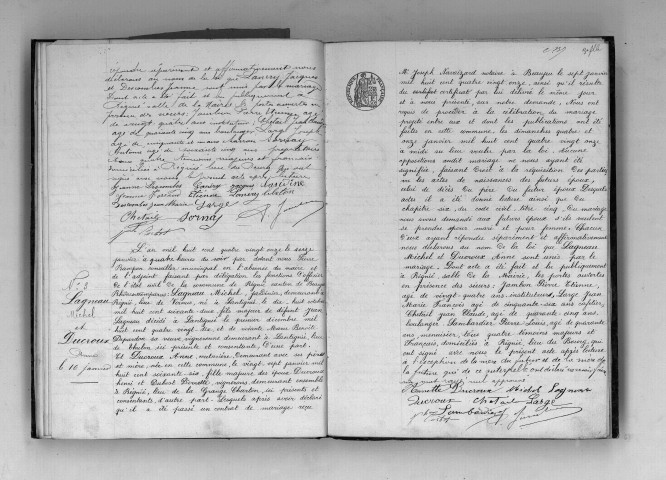 répondre séparément et affirmativement nous
déclarons au nom de la loi que Lanery Jacques
et Descombes Jeanne sont unis par le mariage
Dont acte a été fait et lu publiquement à
Régnié salle de la Mairie les portes ouvertes en
présence des sieurs Jambon Pierre Etienne, âgé
de vingt quatre ans instituteur, Chetail Jean Claude
âgé de quarante cinq ans boulanger Large Joseph
âgé de cinquante et un ans
ans quatre témoins majeurs et français
domiciliés à Régnié, lieu du Bourg qui ont
signé avec nous le présent acte après lecture
Chetail Sornay
L'an mil huit cent quatre vingt onze le seize
janvier à quatre heures du soir par devant nous Pierre
conseiller municipal en l'absence du maire et
de l'adjoint faisant par délégation les fonctions d'officier
de l'état civil de la commune de Régnié canton de Beaujeu
Rhône sont comparus Lagneau Michel, demeurant à
Régnié, lieu de Vernus, né à Lantignié le dix huit octobre
mil huit cent soixante deux fils majeur de défunt Jean
Lagneau décédé à Lantignié le premier décembre mil
huit cent quatre vingt six, et de vivante Marie Benoite
Depardon sa veuve vigneronne demeurant à Lantignié, lieu
du Chalon, ici présente et consentante, d'une part.
Et Ducroux Anne, couturière demeurant avec ses père
et mère, née en cette commune, le vingt sept janvier mil
huit cent soixante six, fille majeure des époux Ducroux
Henri et Benoite, vignerons, demeurant ensemble
à Régnié, lieu de la Grange Charton, ici présents et
consentants, d'autre part. Lesquels après avoir déclaré
qu'il a été passé un contrat de mariage reçu
N° 3
Lagneau
Michel
et
Ducroux
Anne
le 16 janvier
Me Joseph notaire à Beaujeu le sept janvier
mil huit cent quatre vingt onze, ainsi qu'il résulte
du certificat par lui délivré le même jour
et à nous présenté, sur notre demande, Nous ont
requis de procéder à la célébration du mariage
projeté entre eux et dont les publications ont été
faites en cette commune les dimanches quatre et
onze janvier mil huit cent quatre vingt onze
à midi au lieu voulu par la loi. Aucune
opposition audit mariage ne nous ayant été
signifiée, faisant droit à la réquisition des parties
vu les actes de naissances des futurs époux,
celui de décès du père du futur époux desquels
actes il a été donné lecture, ainsi que du
chapitre six, du code civil, titre cinq, du mariage
nous avons demandé aux futurs époux s'ils veulent
se prendre pour mari et pour femme. Chacun
d'eux ayant répondu séparément et affirmativement
nous déclarons au nom de la loi que Lagneau
Michel et Ducroux Anne sont unis par le
mariage. Dont acte a été fait et lu publiquement
à Régnié salle de la Mairie, les portes ouvertes
en présence des sieurs: Jambon Pierre Etienne,
âgé de vingt-quatre ans, instituteur, Large Jean
Marie François âgé de cinquante-six ans rentier,
Chetail Jean Claude, âgé de quarante-cinq ans,
boulanger, Lambardier Pierre-Louis, âgé de quarante
ans, menuisier, tous quatre témoins majeurs et
français, domiciliés à Régnié, lieu du Bourg, qui
ont signé avec nous le présent acte après lecture
à l'exception de la mère du futur et de la mère de
la future qui de ce interpellées ont déclaré ne savoir
Ducroux Michel Lagneau
Ducroux Chetail Large
Lambardier